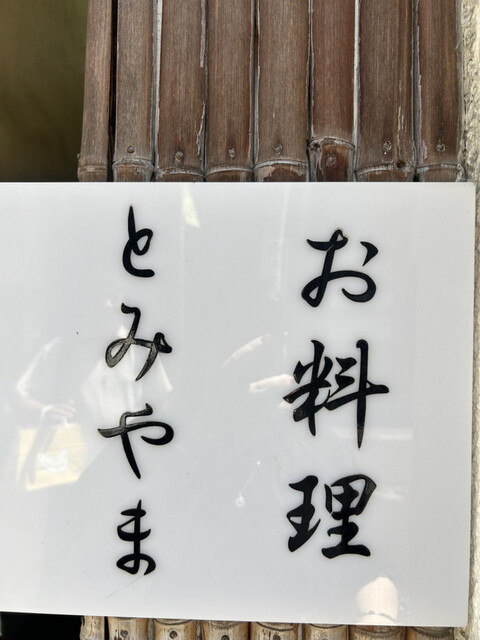 お料理
とみやま